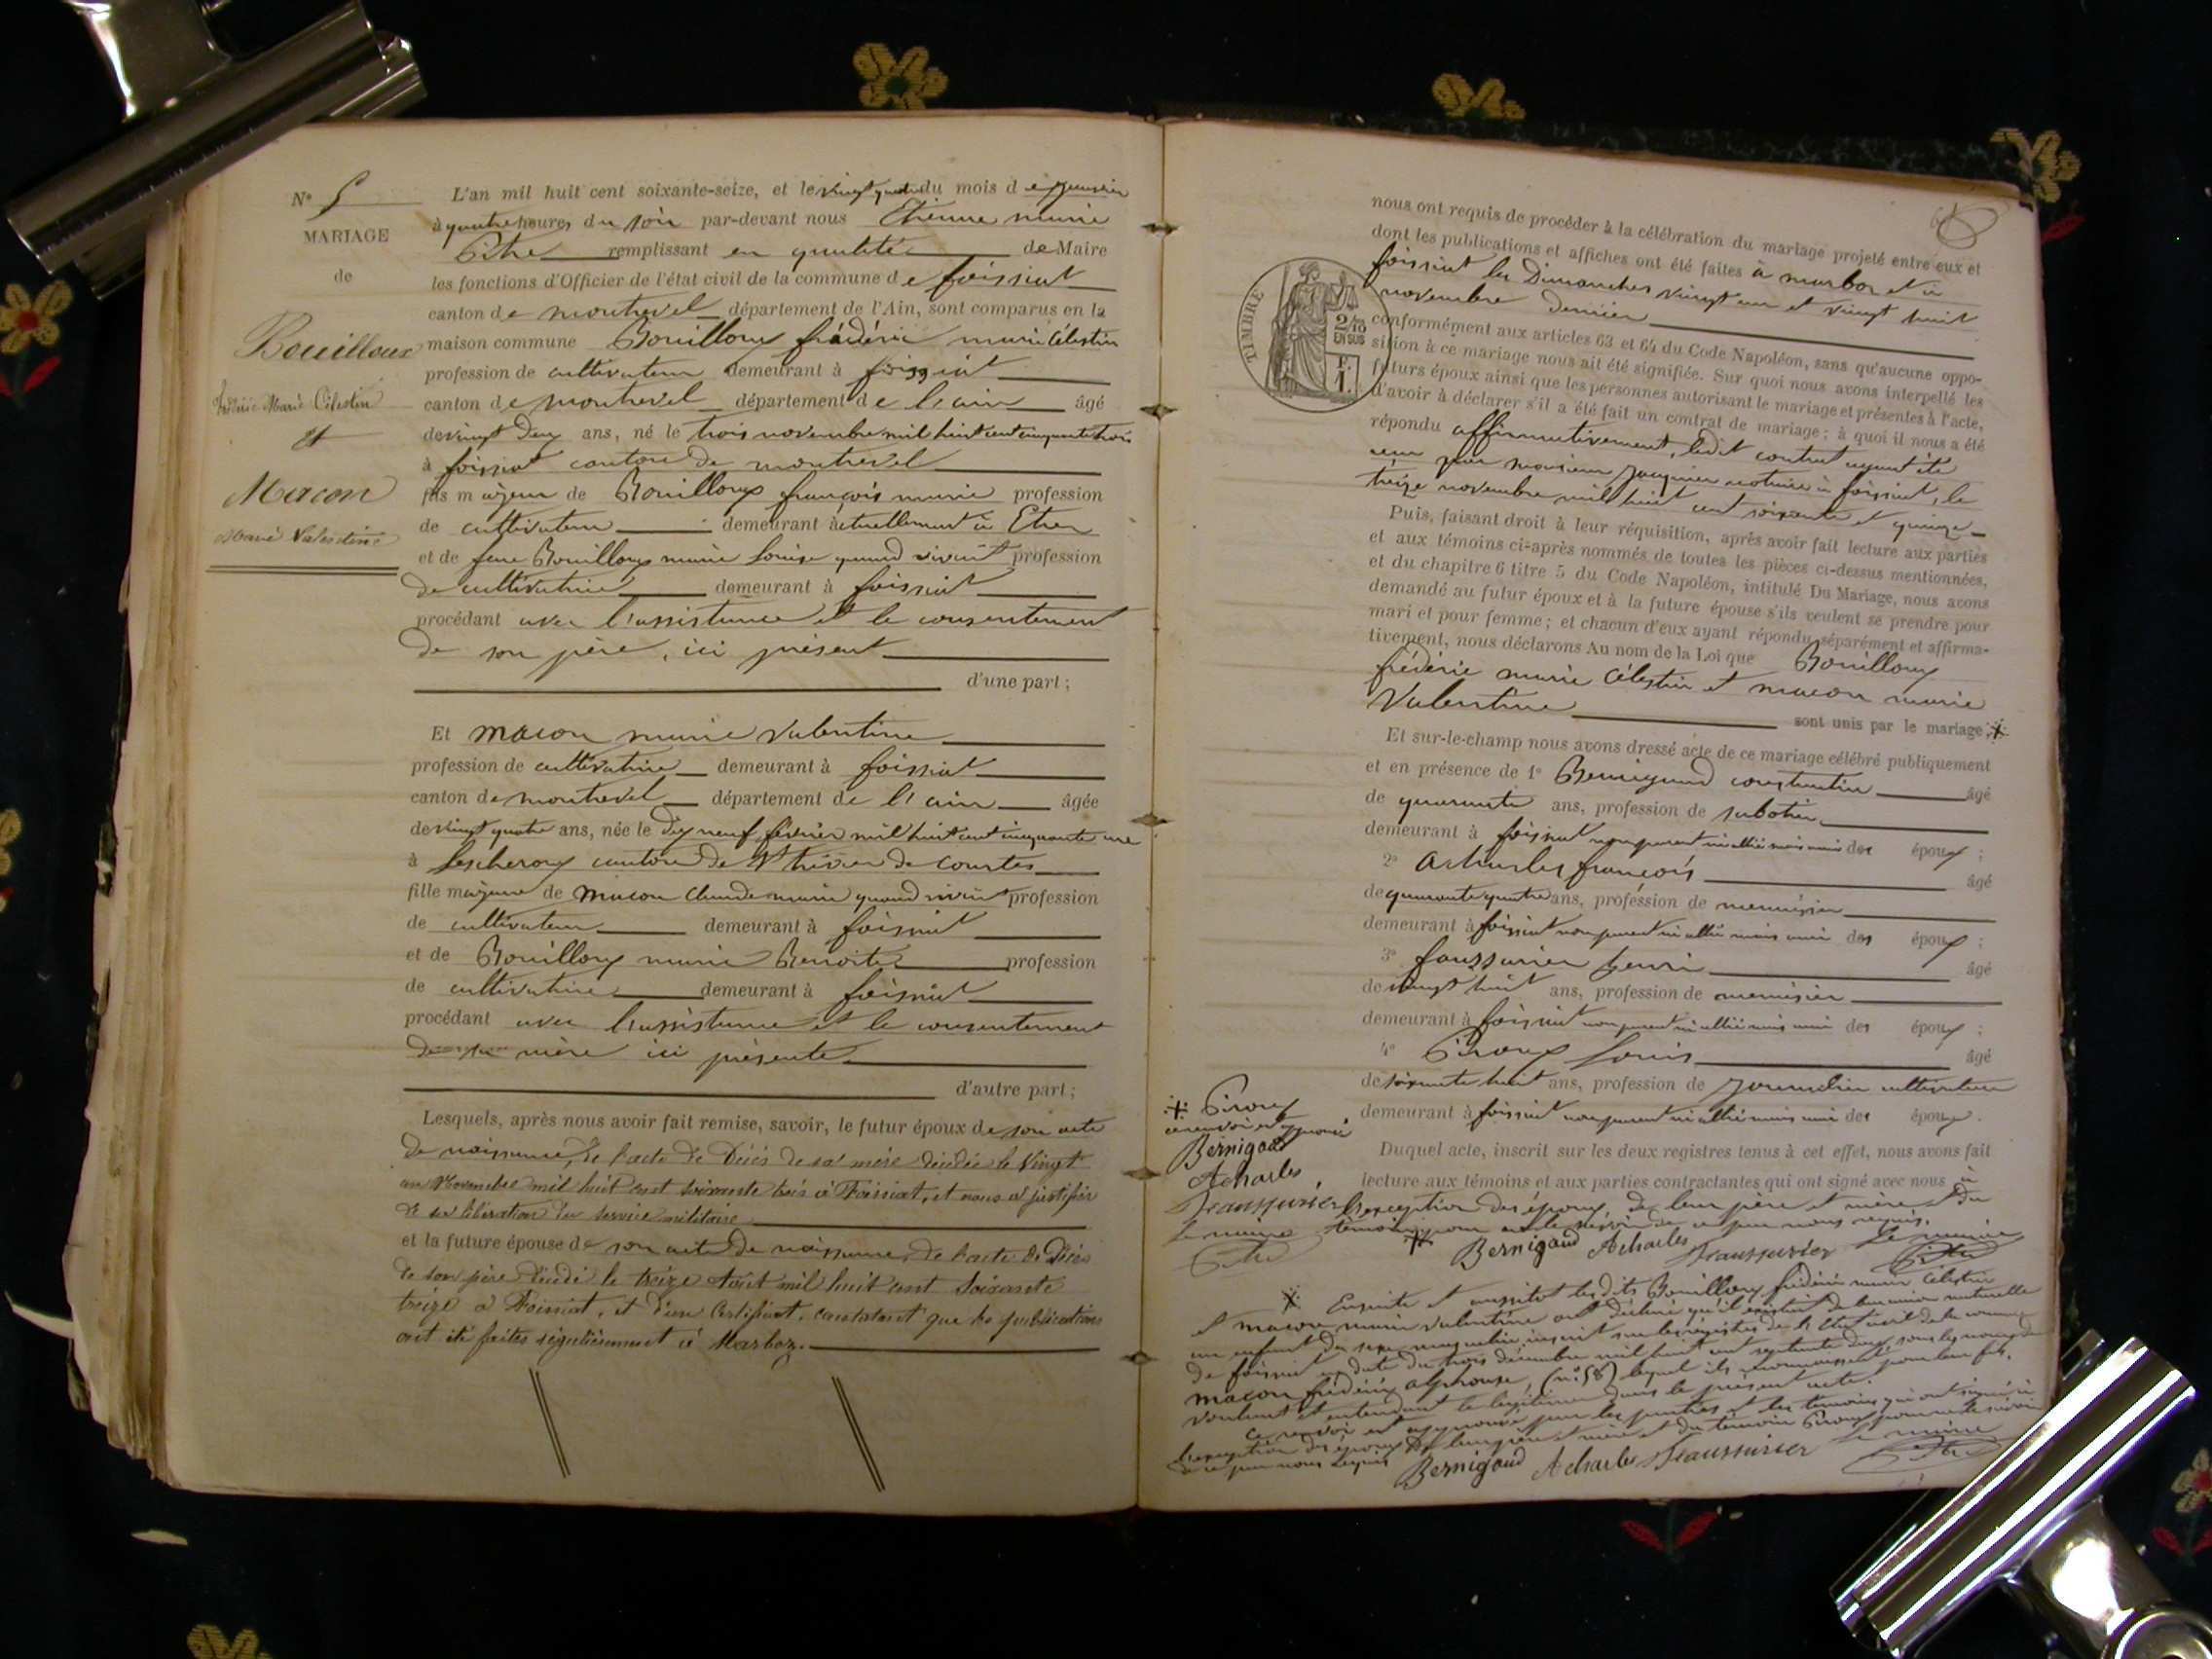 N° 5
MARIAGE
de
Bouilloux
Frédéric Marie Célestin
et
Macon
Marie Valentine
L'an mil huit cent soixante-seize, et le vingt quatre du mois de janvier
à quatre heures du soir par-devant nous Etienne marie
Pitre remplissant en qualité de Maire
les fonctions d'Officier de l'état civil de la commune de foissiat
canton de montrevel département de l'Ain, sont comparus en la
maison commune Bouilloux frédéric marie Célestin
profession de cultivateur demeurant à foissiat
canton de montrevel département de l'ain âgé
de vingt deux ans, né le trois novembre mil huit cent cinquante trois
à foissiat canton de montrevel
fils majeur de Bouilloux françois marie profession
de cultivateur demeurant actuellement à Etrez
et de feue Bouilloux marie Louise quand vivait profession
de cultivatrice demeurant à foissiat
procédant avec l'assistance et le consentement
de son père, ici présent
d'une part ;
Et macon marie valentine
profession de cultivatrice demeurant à foissiat
canton de montrevel département de l'ain âgée
de vingt quatre ans, née le dix neuf février mil huit cent cinquante une
à Lescheroux canton de St trivier de Courtes
fille majeure de macon Claude marie quand vivait profession
de cultivateur demeurant à foissiat
et de Bouilloux marie Benoite profession
de cultivatrice demeurant à foissiat
procédant avec l'assistance et le consentement
de sa mère ici présente
d'autre part ;
Lesquels, après nous avoir fait remise, savoir, le futur époux de son acte
de naissance, de l'acte de Décès de sa mère décédée le Vingt
un Novembre mil huit cent soixante trois à Foissiat, et nous a justifié
de sa libération du service militaire
et la future épouse de son acte de naissance, de l'acte de Décès
de son père décédé le treize Août mil huit cent soixante
treize à Foissiat, et d'un Certificat, constatant que les publications
ont été faites régulièrement à Marboz.
nous ont requis de procéder à la célébration du mariage projeté entre eux et
dont les publications et affiches ont été faites à marboz et à
foissiat les Dimanches vingt un et vingt huit
novembre dernier
TIMBRE
2/10
EN SUS
F.
1.
conformément aux articles 63 et 64 du Code Napoléon, sans qu'aucune oppo-
sition à ce mariage nous ait été signifiée. Sur quoi nous avons interpellé les
futurs époux ainsi que les personnes autorisant le mariage et présentes à l'acte,
d'avoir à déclarer s'il a été fait un contrat de mariage ; à quoi il nous a été
répondu affirmativement, ledit contrat ayant été
reçu par monsieur Jacquier notaire à foissiat, le
treize novembre mil huit cent soixante et quinze
Puis, faisant droit à leur réquisition, après avoir fait lecture aux parties
et aux témoins ci-après nommés de toutes les pièces ci-dessus mentionnées,
et du chapitre 6 titre 5 du Code Napoléon, intitulé Du Mariage, nous avons
demandé au futur époux et à la future épouse s'ils veulent se prendre pour
mari et pour femme ; et chacun d'eux ayant répondu séparément et affirma-
tivement, nous déclarons Au nom de la Loi que Bouilloux
frédéric marie Célestin et macon marie
Valentine sont unis par le mariage
Et sur-le-champ nous avons dressé acte de ce mariage célébré publiquement
et en présence de 1° Bernigaud constantin âgé
de quarante ans, profession de sabotier
demeurant à foissiat non parent ni allié mais ami des époux ;
2° Acharles françois âgé
de quarante quatre ans, profession de menuisier
demeurant à foissiat non parent ni allié mais ami des époux ;
3° faussurier henri âgé
de vingt huit ans, profession de menuisier
demeurant à foissiat non parent ni allié mais ami des époux ;
4° Piroux Louis âgé
de soixante huit ans, profession de journalier cultivateur
demeurant à foissiat non parent ni allié mais ami des époux.
Duquel acte, inscrit sur les deux registres tenus à cet effet, nous avons fait
lecture aux témoins et aux parties contractantes qui ont signé avec nous à
l'exception des époux, de leur père et mère et du
témoin pour ne le savoir de ce par nous requis.
Bernigaud Acharles Faussurier Le maire
Pitre
Piroux
ce renvoi est approuvé
Bernigaud
Acharles
Faussurier
Le maire
Pitre
Ensuite et aussitot lesdits Bouilloux frédéric marie Célestin
et macon marie valentine ont déclaré qu'il existait de leur union mutuelle
un enfant du sexe masculin inscrit sur les registres de l'Etat civil de la commune
de foissiat en date du trois décembre mil huit cent septante deux sous les noms de
macon frédéric alphonse, (n° 58) lequel ils reconnaissent pour leur fils,
voulant et entendant le légitimer dans le présent acte.
Ce renvoi est approuvé par les parties et les témoins qui ont signé, à
l'exception des époux de leur père et mère et du témoin Piroux pour ne le savoir
de ce par nous requis Bernigaud Acharles Faussurier Le maire
Pitre